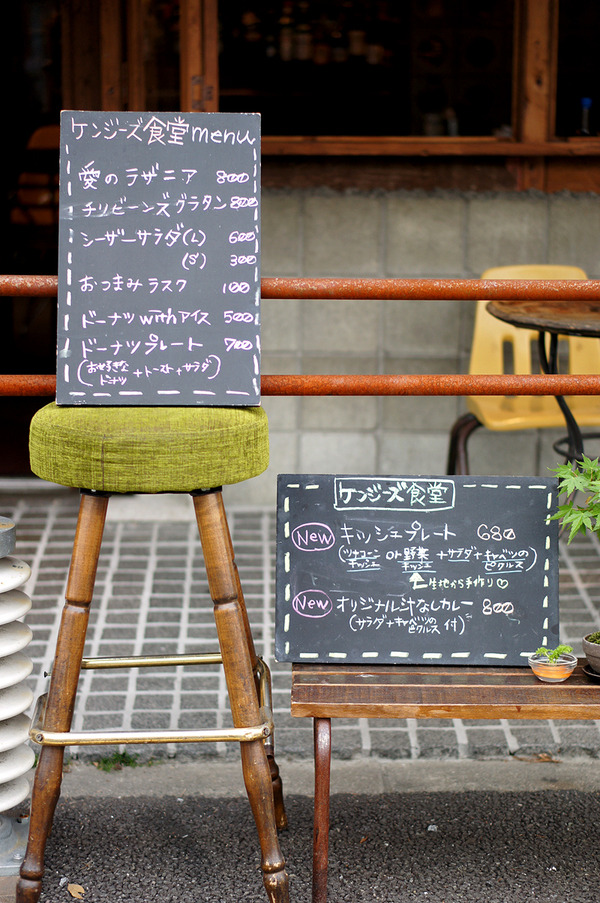 ケンジーズ食堂menu
愛のラザニア 800
チリビーンズグラタン 800
シーザーサラダ(L) 600
(S) 300
おつまみラスク 100
ドーナツwithアイス 500
ドーナツプレート 700
(お好きなドーナツ+トースト+サラダ)
ケンジーズ食堂
New キッシュプレート 680
(ツナコーンキッシュ or 野菜キッシュ +サラダ+キャベツのピクルス)
生地から手作り♡
New オリジナル汁なしカレー 800
(サラダ+キャベツのピクルス 付)